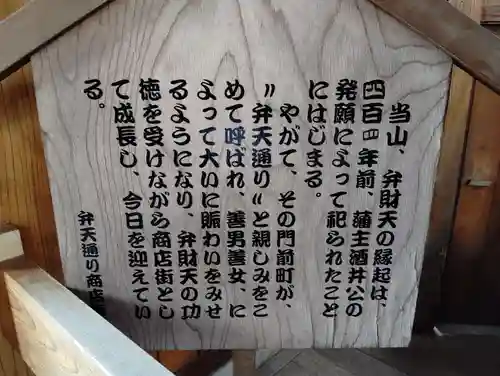 当山、弁財天の縁起は、
四百四年前、藩主酒井公の
発願によって祀られたこと
にはじまる。
やがて、その門前町が、
〃弁天通り〃と親しみをこ
めて呼ばれ、善男善女、に
よって大いに賑わいをみせ
るようになり、弁財天の功
徳を受けながら商店街とし
て成長し、今日を迎えてい
る。
弁天通り商店